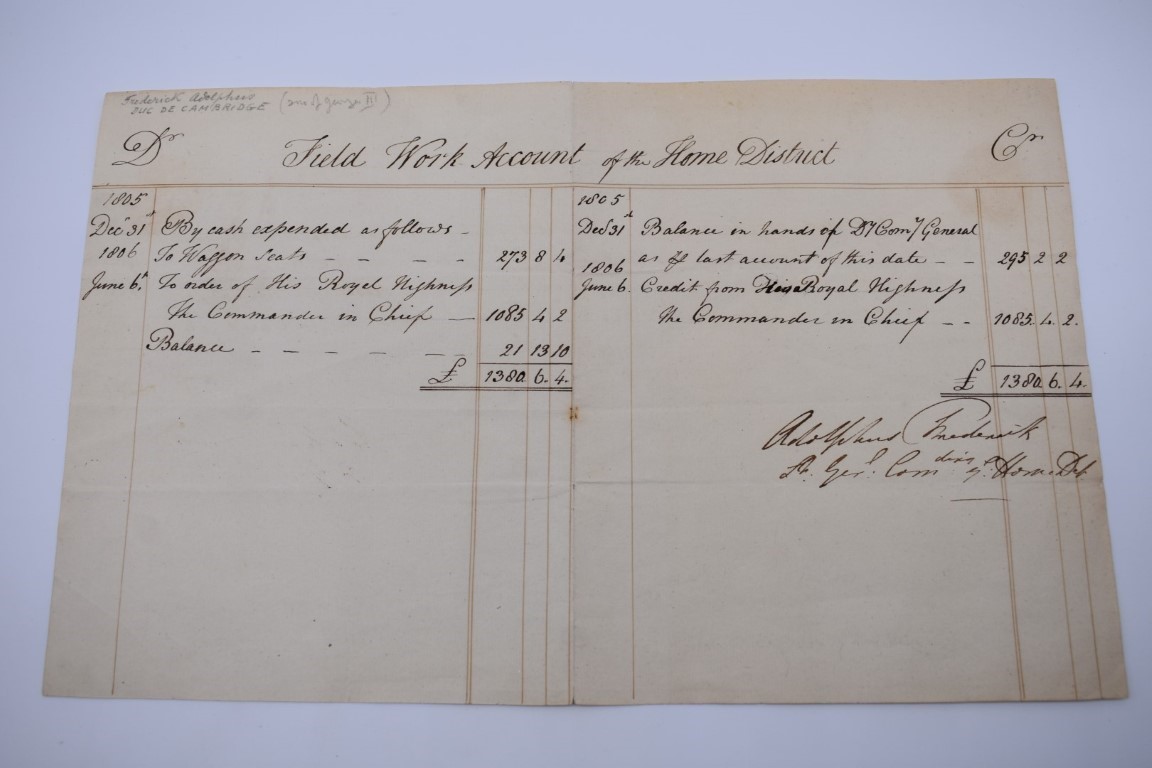 Frederick Adolphus
DUC DE CAMBRIDGE (son of George III)
Dr Field Work Account of the Home District Cr
1805
Decr 31st By cash expended as follows -
1806 To Waggon Seats - - - - 273 8 4
June 6. To order of His Royel Highness
The Commander in Chief - 1085 4 2
Balance - - - - - - 21 13 10
£ 1380 6. 4.
1805
Decr 31st Balance in hands of Dy Comy General
as pr last account of this date - - 295 2 2
1806
June 6. Credit from His Royal Highness
the Commander in Chief - - 1085. 4. 2.
£ 1380 6. 4.
Adolphus Frederick
Lt. Genl. Comding ye. Home Dt.